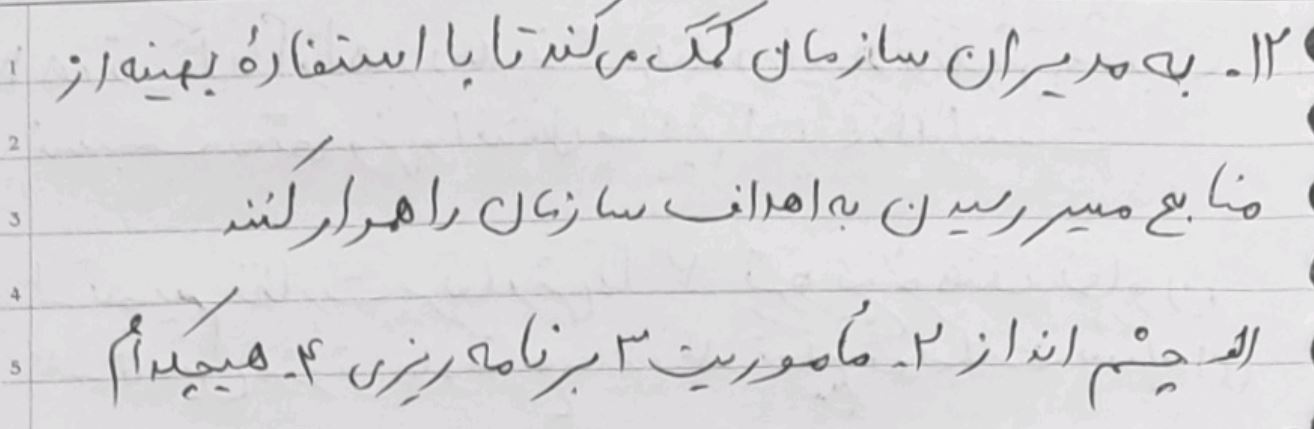 ۱۲. به مدیران سازمان کمک می‌کند تا با استفادهٔ بهینه از
منابع مسیر رسیدن به اهداف سازمان را هموار کنند
الف چشم انداز ۲. مأموریت ۳ برنامه ریزی ۴. هیچکدام